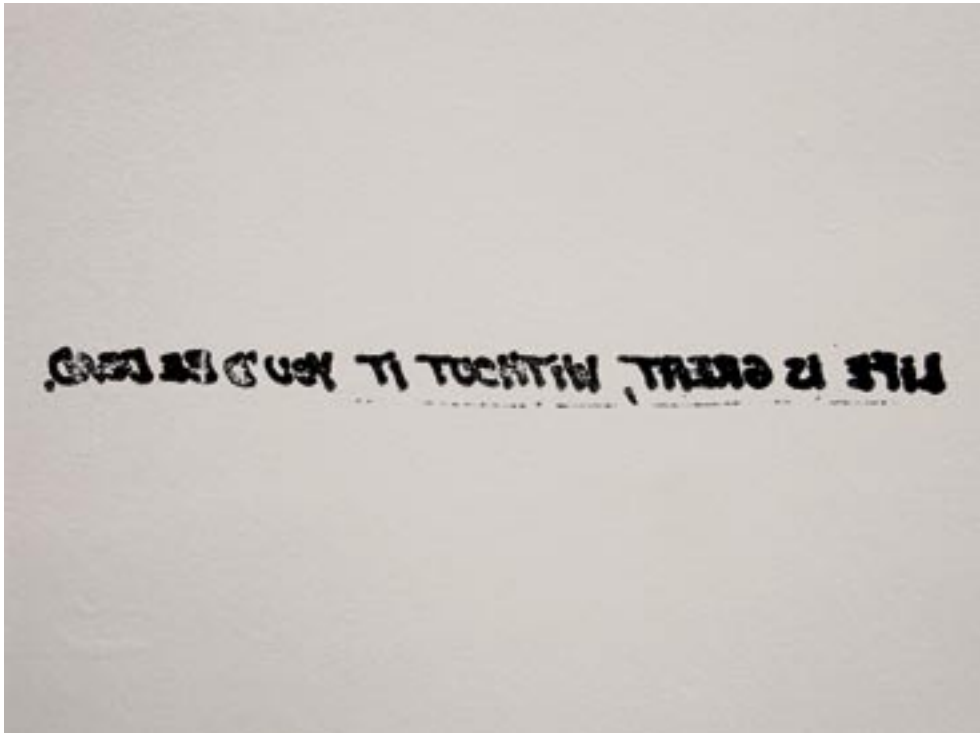 LIFE IS GREAT, WITHOUT IT YOU'D BE DEAD.